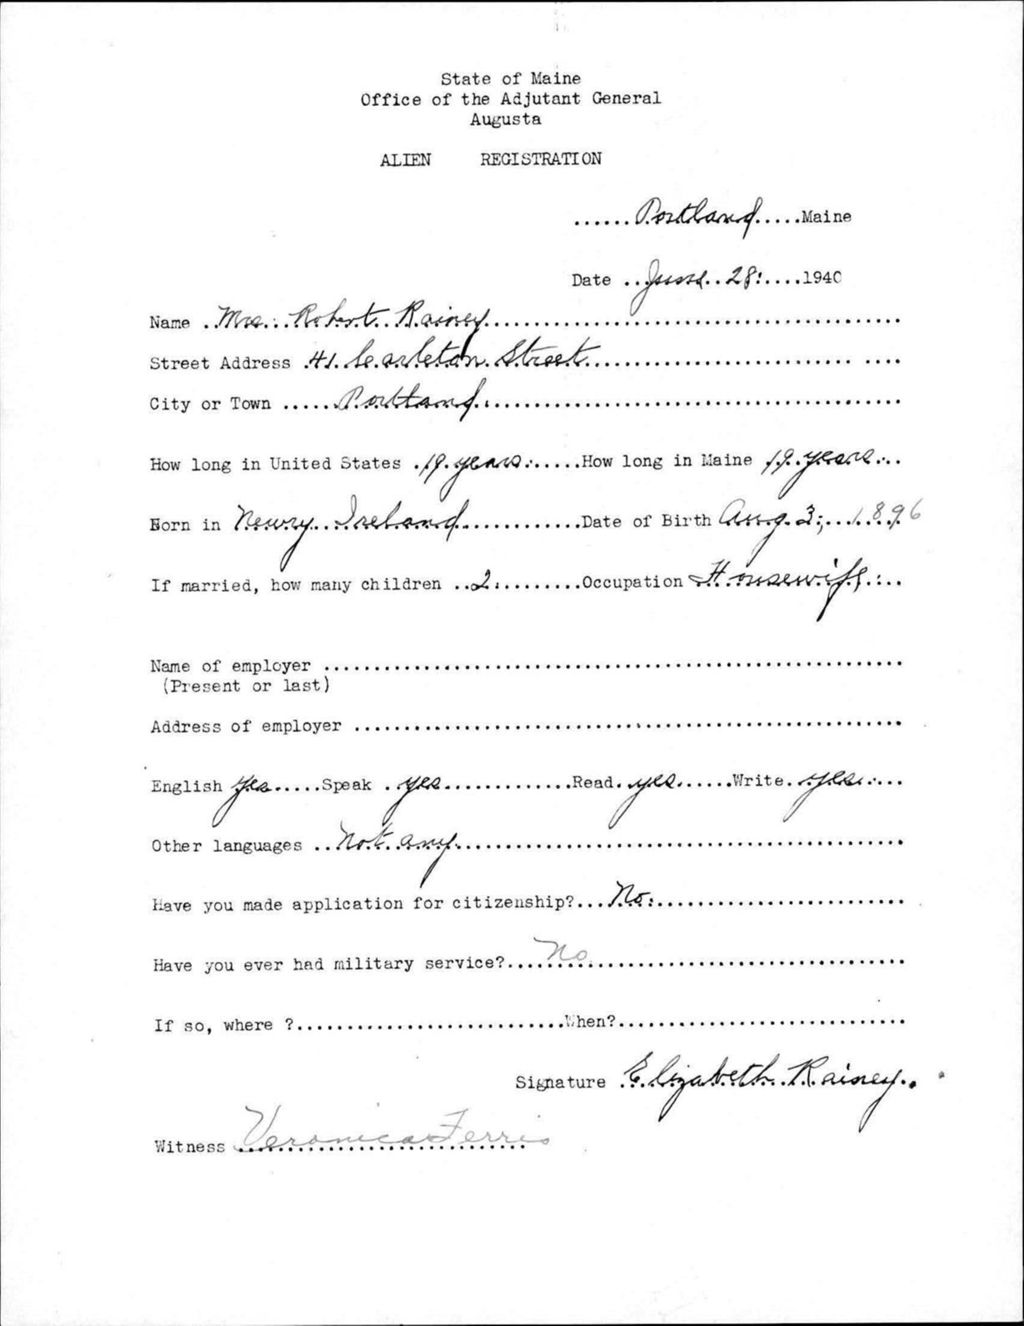 State of Maine
Office of the Adjutant General
Augusta
ALIEN REGISTRATION
......Portland.....Maine
Date ..June..28:....1940
Name .Mrs...Robert..Rainey..................................................
Street Address .41.Carleton.Street..................................
City or Town ......Portland..................................................
How long in United States .19.years.:.....How long in Maine 19.years...
Born in Newry...Ireland..............Date of Birth Aug.3;...1896
If married, how many children ..2:.........Occupation Housewife.:..
Name of employer ......................................................................
(Present or last)
Address of employer ..................................................................
English yes.....Speak .yes..............Read.yes......Write.yes.....
Other languages ..Not.any......................................................
Have you made application for citizenship?...No:..............................
Have you ever had military service?....No......................................
If so, where ?...........................When?..................................
Signature .Elizabeth.Rainey..
Witness Veronica Ferris